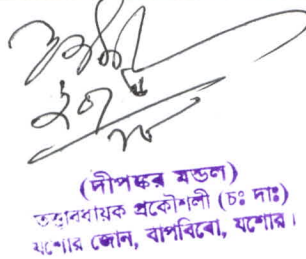 (দীপঙ্কর মন্ডল)
তত্ত্বাবধায়ক প্রকৌশলী (চঃ দাঃ)
যশোর জোন, বাপবিবো, যশোর।